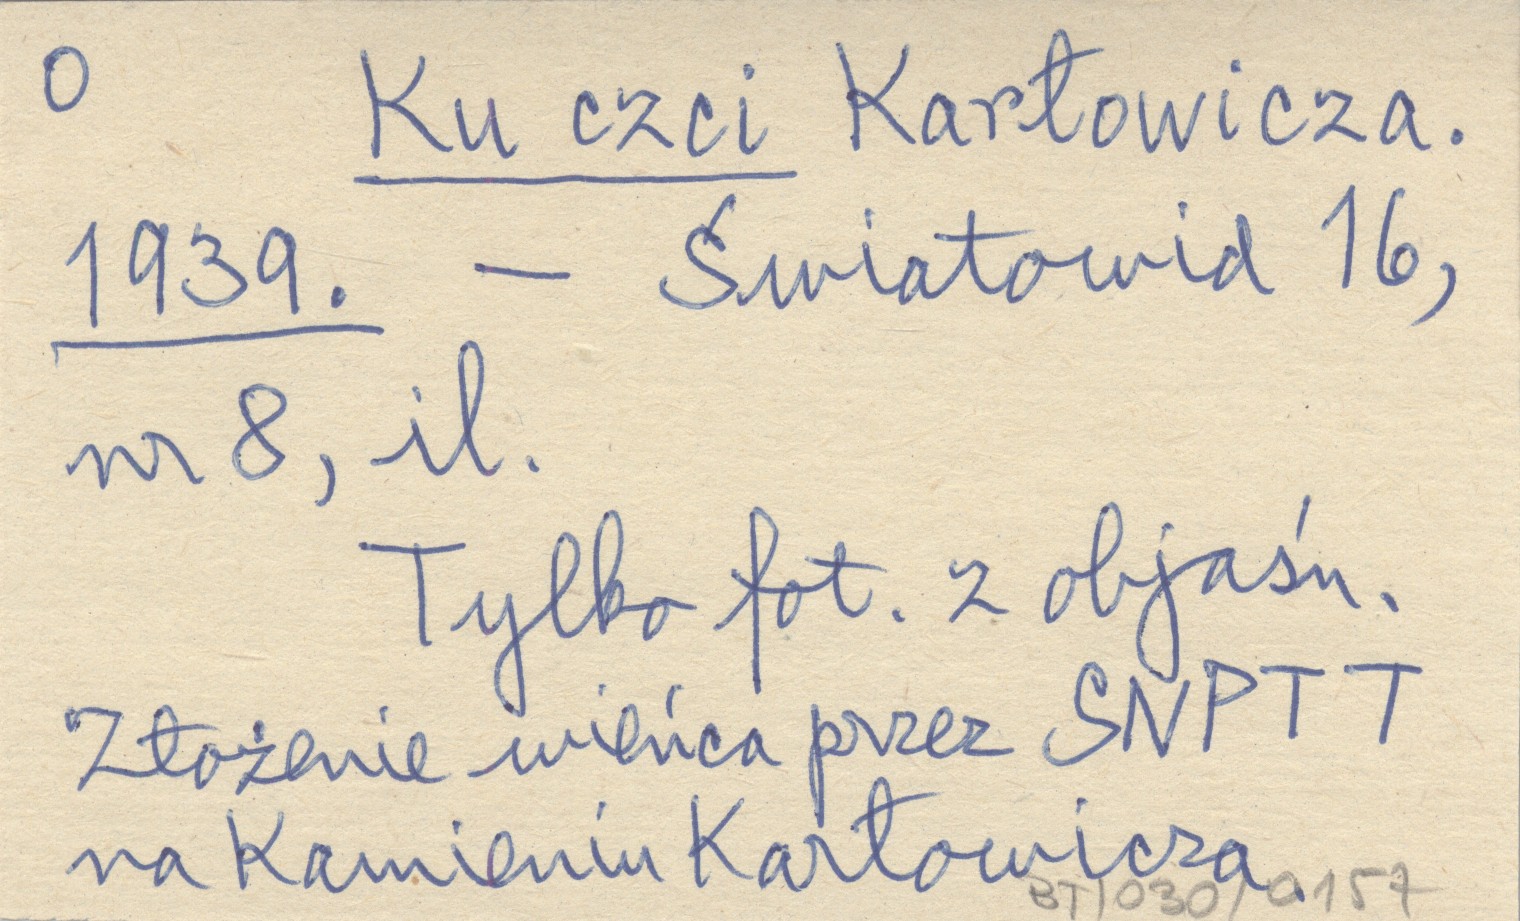 O Ku czci Karłowicza.
1939. — Światowid 16,
nr 8, il.
Tylko fot. z objaśn.
Złożenie wieńca przez SNPTT
na Kamieniu Karłowicza.
BT/030/0157